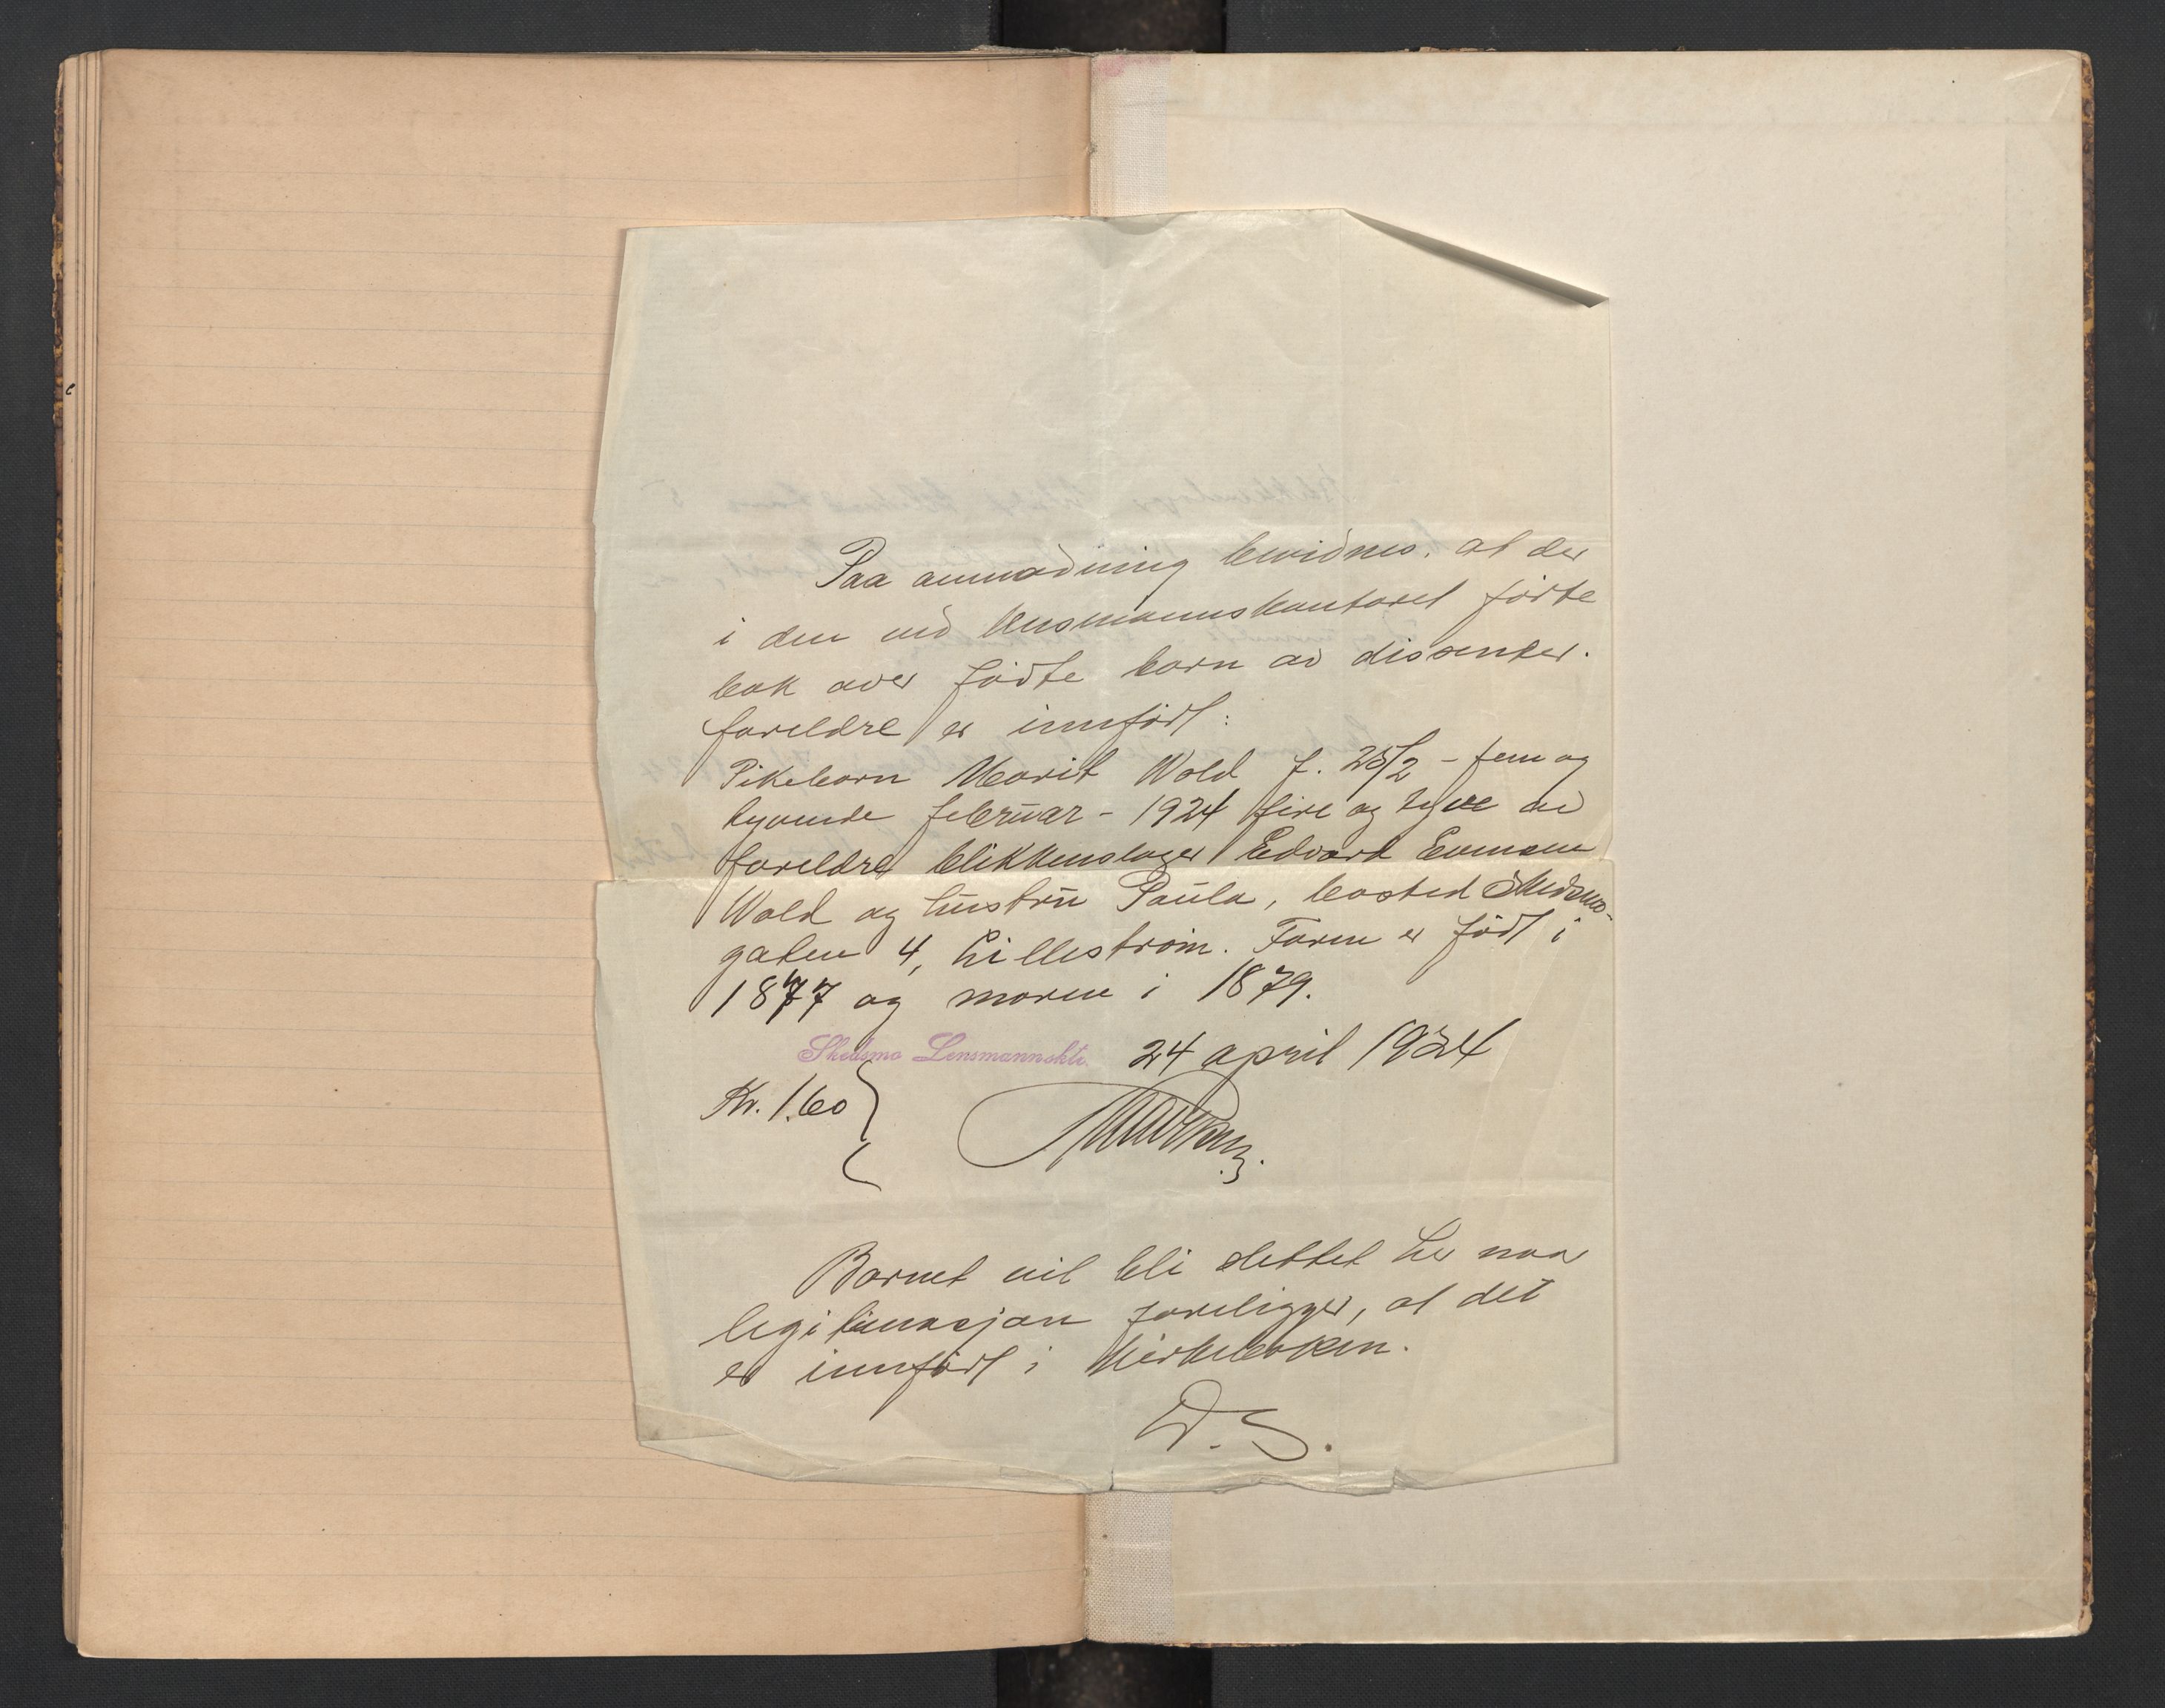 Paa anmodning bevidnes, at der
i den ved lensmannskontoret førte
bok over fødte barn av dissenter-
foreldre er innført:
Pikebarn Marit Wold f. 25/2 - fem og
tyvende februar - 1924 fire og tyve av
foreldre blikkenslager Edvard
Wold og hustru Paula, bosted Skedsmo-
gaten 4, Lillestrøm. Faren er født i
1877 og moren i 1879.
Skedsmo Lensmannskt. 24 april 1924
Kr. 1.60
Barnet vil bli slettet her naar
legitimasjon foreligger, at det
er innført i kirkeboken.
D. S.